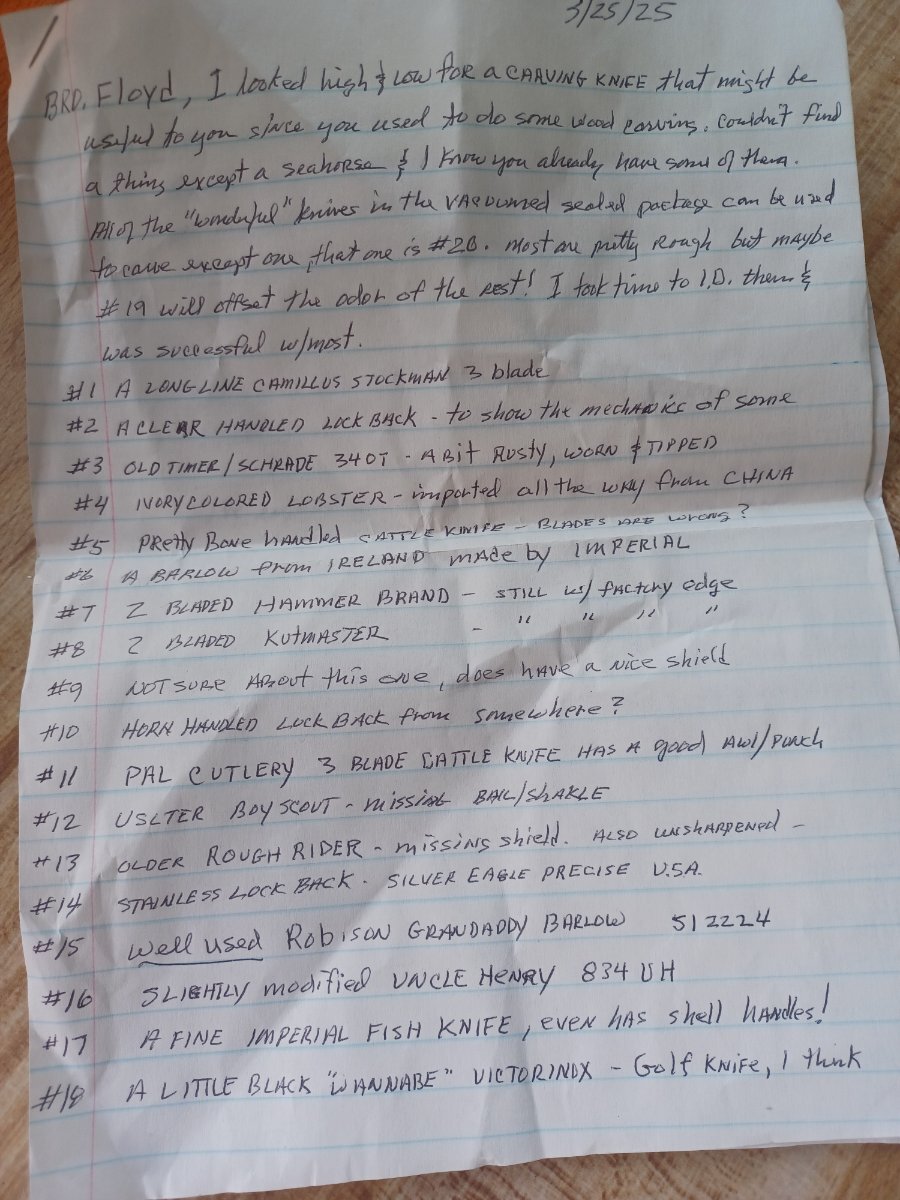 3/25/25
BRD. Floyd, I looked high & low for a CARVING KNIFE that might be
useful to you since you used to do some wood carving. Couldn't find
a thing except a seahorse & I know you already have some of them.
All of the "wonderful" knives in the vacuumed sealed package can be used
to carve except one, that one is #20. Most are pretty rough but maybe
#19 will offset the odor of the rest! I took time to I.D. them &
was successful w/most.
#1 A LONG LINE CAMILLUS STOCKMAN 3 blade
#2 A CLEAR HANDLED LOCK BACK - to show the mechanics of some
#3 OLD TIMER/SCHRADE 34OT - A Bit Rusty, WORN & TIPPED
#4 IVORY COLORED LOBSTER - imported all the way from CHINA
#5 Pretty Bone handled CATTLE KNIFE - BLADES ARE wrong?
#6 A BARLOW from IRELAND made by IMPERIAL
#7 2 BLADED HAMMER BRAND - STILL w/ factory edge
#8 2 BLADED KUTMASTER - " " " "
#9 NOT SURE About this one, does have a nice shield
#10 HORN HANDLED LOCK BACK from somewhere?
#11 PAL CUTLERY 3 BLADE CATTLE KNIFE HAS A good AWl/PUNCH
#12 USLTER BOY SCOUT - missing BAIL/SHAKLE
#13 OLDER ROUGH RIDER - missing shield. ALSO UNSHARPENED -
#14 STAINLESS LOCK BACK - SILVER EAGLE PRECISE U.S.A.
#15 well used Robison GRANDADDY BARLOW 512224
#16 SLIGHTLY modified UNCLE HENRY 834 UH
#17 A FINE IMPERIAL FISH KNIFE, even HAS shell HANdles!
#18 A LITTLE BLACK "WANNABE" VICTORINOX - Golf KNIFE, I think